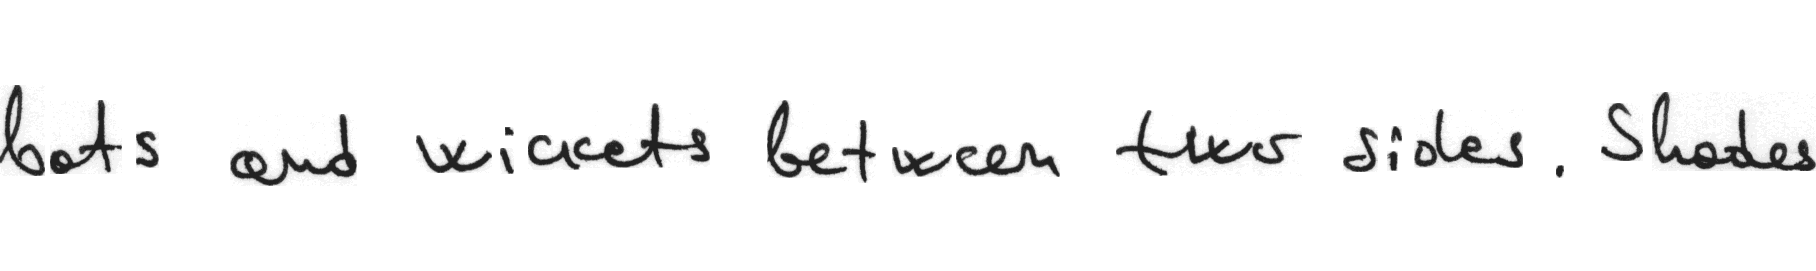 bats and wickets between two sides. Shades